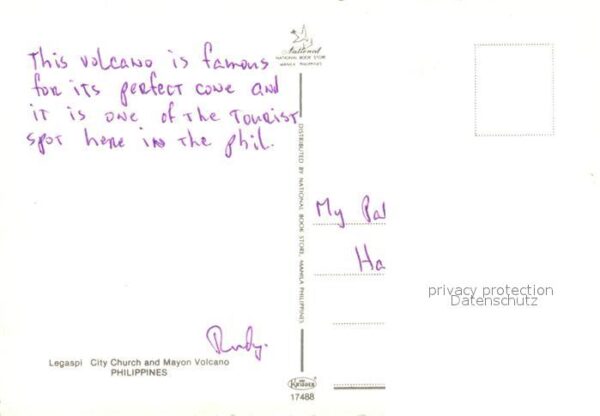 This volcano is famous
for its perfect cone and
it is one of the tourist
spot here in the phil.
Rudy.
Legaspi City Church and Mayon Volcano
PHILIPPINES
National
NATIONAL BOOK STORE
MANILA PHILIPPINES
DISTRIBUTED BY NATIONAL BOOK STORE, MANILA PHILIPPINES
17488
My Pal
Ha
privacy protection
Datenschutz